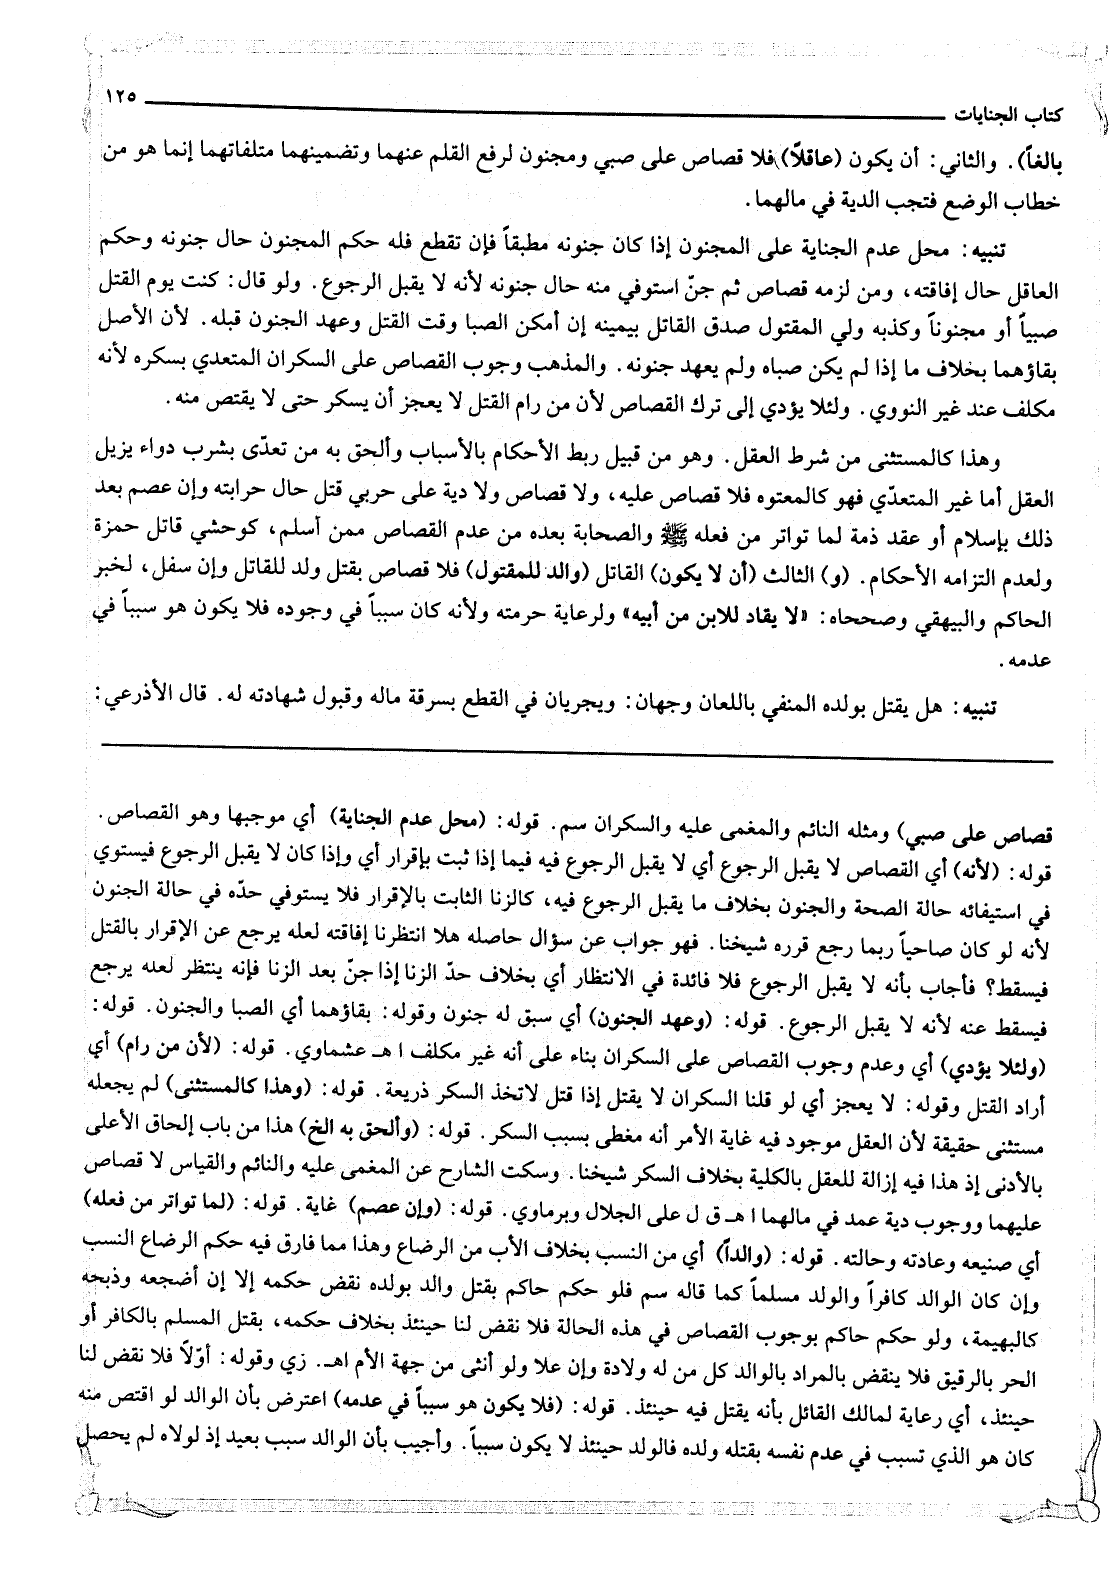 كتاب الجنايات
١٢٥
بالغاً). والثاني: أن يكون (عاقلاً) فلا قصاص على صبي ومجنون لرفع القلم عنهما وتضمينهما متلفاتهما إنما هو من
خطاب الوضع فتجب الدية في مالهما.
تنبيه: محل عدم الجناية على المجنون إذا كان جنونه مطبقاً فإن تقطع فله حكم المجنون حال جنونه وحكم
العاقل حال إفاقته، ومن لزمه قصاص ثم جنّ استوفي منه حال جنونه لأنه لا يقبل الرجوع. ولو قال: كنت يوم القتل
صبياً أو مجنوناً وكذبه ولي المقتول صدق القاتل بيمينه إن أمكن الصبا وقت القتل وعهد الجنون قبله. لأن الأصل
بقاؤهما بخلاف ما إذا لم يكن صباه ولم يعهد جنونه. والمذهب وجوب القصاص على السكران المتعدي بسكره لأنه
مكلف عند غير النووي. ولئلا يؤدي إلى ترك القصاص لأن من رام القتل لا يعجز أن يسكر حتى لا يقتص منه.
وهذا كالمستثنى من شرط العقل. وهو من قبيل ربط الأحكام بالأسباب وألحق به من تعدّى بشرب دواء يزيل
العقل أما غير المتعدّي فهو كالمعتوه فلا قصاص عليه، ولا قصاص ولا دية على حربي قتل حال حرابته وإن عصم بعد
ذلك بإسلام أو عقد ذمة لما تواتر من فعله ﷺ والصحابة بعده من عدم القصاص ممن أسلم، كوحشي قاتل حمزة
ولعدم التزامه الأحكام. (و) الثالث (أن لا يكون) القاتل (والد للمقتول) فلا قصاص بقتل ولد للقاتل وإن سفل، لخبر
الحاكم والبيهقي وصححاه: «لا يقاد للابن من أبيه» ولرعاية حرمته ولأنه كان سبباً في وجوده فلا يكون هو سبباً في
عدمه.
تنبيه: هل يقتل بولده المنفي باللعان وجهان: ويجريان في القطع بسرقة ماله وقبول شهادته له. قال الأذرعي:
قصاص على صبي) ومثله النائم والمغمى عليه والسكران سم. قوله: (محل عدم الجناية) أي موجبها وهو القصاص.
قوله: (لأنه) أي القصاص لا يقبل الرجوع أي لا يقبل الرجوع فيه فيما إذا ثبت بإقرار أي وإذا كان لا يقبل الرجوع فيستوي
في استيفائه حالة الصحة والجنون بخلاف ما يقبل الرجوع فيه، كالزنا الثابت بالإقرار فلا يستوفي حدّه في حالة الجنون
لأنه لو كان صاحياً ربما رجع قرره شيخنا. فهو جواب عن سؤال حاصله هلا انتظرنا إفاقته لعله يرجع عن الإقرار بالقتل
فيسقط؟ فأجاب بأنه لا يقبل الرجوع فلا فائدة في الانتظار أي بخلاف حدّ الزنا إذا جنّ بعد الزنا فإنه ينتظر لعله يرجع
فيسقط عنه لأنه لا يقبل الرجوع. قوله: (وعهد الجنون) أي سبق له جنون وقوله: بقاؤهما أي الصبا والجنون. قوله:
(ولئلا يؤدي) أي وعدم وجوب القصاص على السكران بناء على أنه غير مكلف ا هـ عشماوي. قوله: (لأن من رام) أي
أراد القتل وقوله: لا يعجز أي لو قلنا السكران لا يقتل إذا قتل لاتخذ السكر ذريعة. قوله: (وهذا كالمستثنى) لم يجعله
مستثنى حقيقة لأن العقل موجود فيه غاية الأمر أنه مغطى بسبب السكر. قوله: (وألحق به الخ) هذا من باب إلحاق الأعلى
بالأدنى إذ هذا فيه إزالة للعقل بالكلية بخلاف السكر شيخنا. وسكت الشارح عن المغمى عليه والنائم والقياس لا قصاص
عليهما ووجوب دية عمد في مالهما ا هـ ق ل على الجلال وبرماوي. قوله: (وإن عصم) غاية. قوله: (لما تواتر من فعله)
أي صنيعه وعادته وحالته. قوله: (والداً) أي من النسب بخلاف الأب من الرضاع وهذا مما فارق فيه حكم الرضاع النسب
وإن كان الوالد كافراً والولد مسلماً كما قاله سم فلو حكم حاكم بقتل والد بولده نقض حكمه إلا إن أضجعه وذبحه
كالبهيمة، ولو حكم حاكم بوجوب القصاص في هذه الحالة فلا نقض لنا حينئذ بخلاف حكمه، بقتل المسلم بالكافر أو
الحر بالرقيق فلا ينقض بالمراد بالوالد كل من له ولادة وإن علا ولو أنثى من جهة الأم اهـ. زي وقوله: أوّلاً فلا نقض لنا
حينئذ، أي رعاية لمالك القائل بأنه يقتل فيه حينئذ. قوله: (فلا يكون هو سبباً في عدمه) اعترض بأن الوالد لو اقتص منه
كان هو الذي تسبب في عدم نفسه بقتله ولده فالولد حينئذ لا يكون سبباً. وأجيب بأن الوالد سبب بعيد إذ لولاه لم يحصل